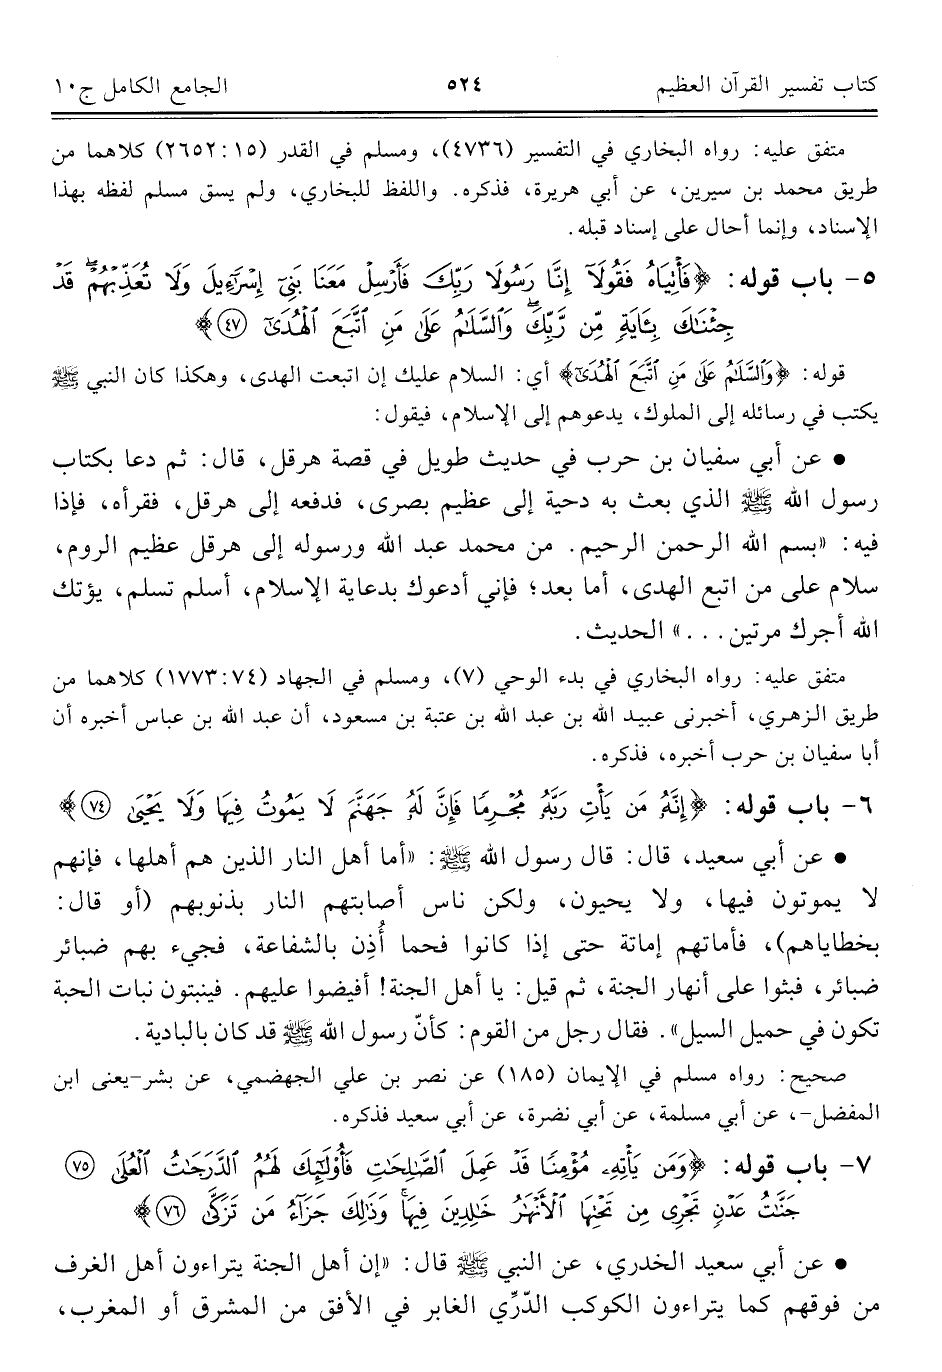 كتاب تفسير القرآن العظيم ٥٢٤ الجامع الكامل ج١٠
متفق عليه: رواه البخاري في التفسير (٤٧٣٦)، ومسلم في القدر (١٥: ٢٦٥٢) كلاهما من
طريق محمد بن سيرين، عن أبي هريرة، فذكره. واللفظ للبخاري، ولم يسق مسلم لفظه بهذا
الإسناد، وإنما أحال على إسناد قبله.
٥- باب قوله: ﴿فَأْتِيَاهُ فَقُولَآ إِنَّا رَسُولَا رَبِّكَ فَأَرْسِلْ مَعَنَا بَنِىٓ إِسْرَٰٓءِيلَ وَلَا تُعَذِّبْهُمْ ۖ قَدْ
جِئْنَٰكَ بِـَٔايَةٍ مِّن رَّبِّكَ ۖ وَٱلسَّلَٰمُ عَلَىٰ مَنِ ٱتَّبَعَ ٱلْهُدَىٰٓ ٤٧﴾
قوله: ﴿وَٱلسَّلَٰمُ عَلَىٰ مَنِ ٱتَّبَعَ ٱلْهُدَىٰٓ﴾ أي: السلام عليك إن اتبعت الهدى، وهكذا كان النبي ﷺ
يكتب في رسائله إلى الملوك، يدعوهم إلى الإسلام، فيقول:
• عن أبي سفيان بن حرب في حديث طويل في قصة هرقل، قال: ثم دعا بكتاب
رسول الله ﷺ الذي بعث به دحية إلى عظيم بصرى، فدفعه إلى هرقل، فقرأه، فإذا
فيه: «بسم الله الرحمن الرحيم. من محمد عبد الله ورسوله إلى هرقل عظيم الروم،
سلام على من اتبع الهدى، أما بعد؛ فإني أدعوك بدعاية الإسلام، أسلم تسلم، يؤتك
الله أجرك مرتين...» الحديث.
متفق عليه: رواه البخاري في بدء الوحي (٧)، ومسلم في الجهاد (٧٤: ١٧٧٣) كلاهما من
طريق الزهري، أخبرنى عبيد الله بن عبد الله بن عتبة بن مسعود، أن عبد الله بن عباس أخبره أن
أبا سفيان بن حرب أخبره، فذكره.
٦- باب قوله: ﴿إِنَّهُۥ مَن يَأْتِ رَبَّهُۥ مُجْرِمًا فَإِنَّ لَهُۥ جَهَنَّمَ لَا يَمُوتُ فِيهَا وَلَا يَحْيَىٰ ٧٤﴾
• عن أبي سعيد، قال: قال رسول الله ﷺ: «أما أهل النار الذين هم أهلها، فإنهم
لا يموتون فيها، ولا يحيون، ولكن ناس أصابتهم النار بذنوبهم (أو قال:
بخطاياهم)، فأماتهم إماتة حتى إذا كانوا فحما أُذِن بالشفاعة، فجيء بهم ضبائر
ضبائر، فبثوا على أنهار الجنة، ثم قيل: يا أهل الجنة! أفيضوا عليهم. فينبتون نبات الحبة
تكون في حميل السيل». فقال رجل من القوم: كأنّ رسول الله ﷺ قد كان بالبادية.
صحيح: رواه مسلم في الإيمان (١٨٥) عن نصر بن علي الجهضمي، عن بشر-يعنى ابن
المفضل-، عن أبي مسلمة، عن أبي نضرة، عن أبي سعيد فذكره.
٧- باب قوله: ﴿وَمَن يَأْتِهِۦ مُؤْمِنًا قَدْ عَمِلَ ٱلصَّٰلِحَٰتِ فَأُو۟لَٰٓئِكَ لَهُمُ ٱلدَّرَجَٰتُ ٱلْعُلَىٰ ٧٥
جَنَّٰتُ عَدْنٍ تَجْرِى مِن تَحْتِهَا ٱلْأَنْهَٰرُ خَٰلِدِينَ فِيهَا ۚ وَذَٰلِكَ جَزَآءُ مَن تَزَكَّىٰ ٧٦﴾
• عن أبي سعيد الخدري، عن النبي ﷺ قال: «إن أهل الجنة يتراءون أهل الغرف
من فوقهم كما يتراءون الكوكب الدّرِّي الغابر في الأفق من المشرق أو المغرب،